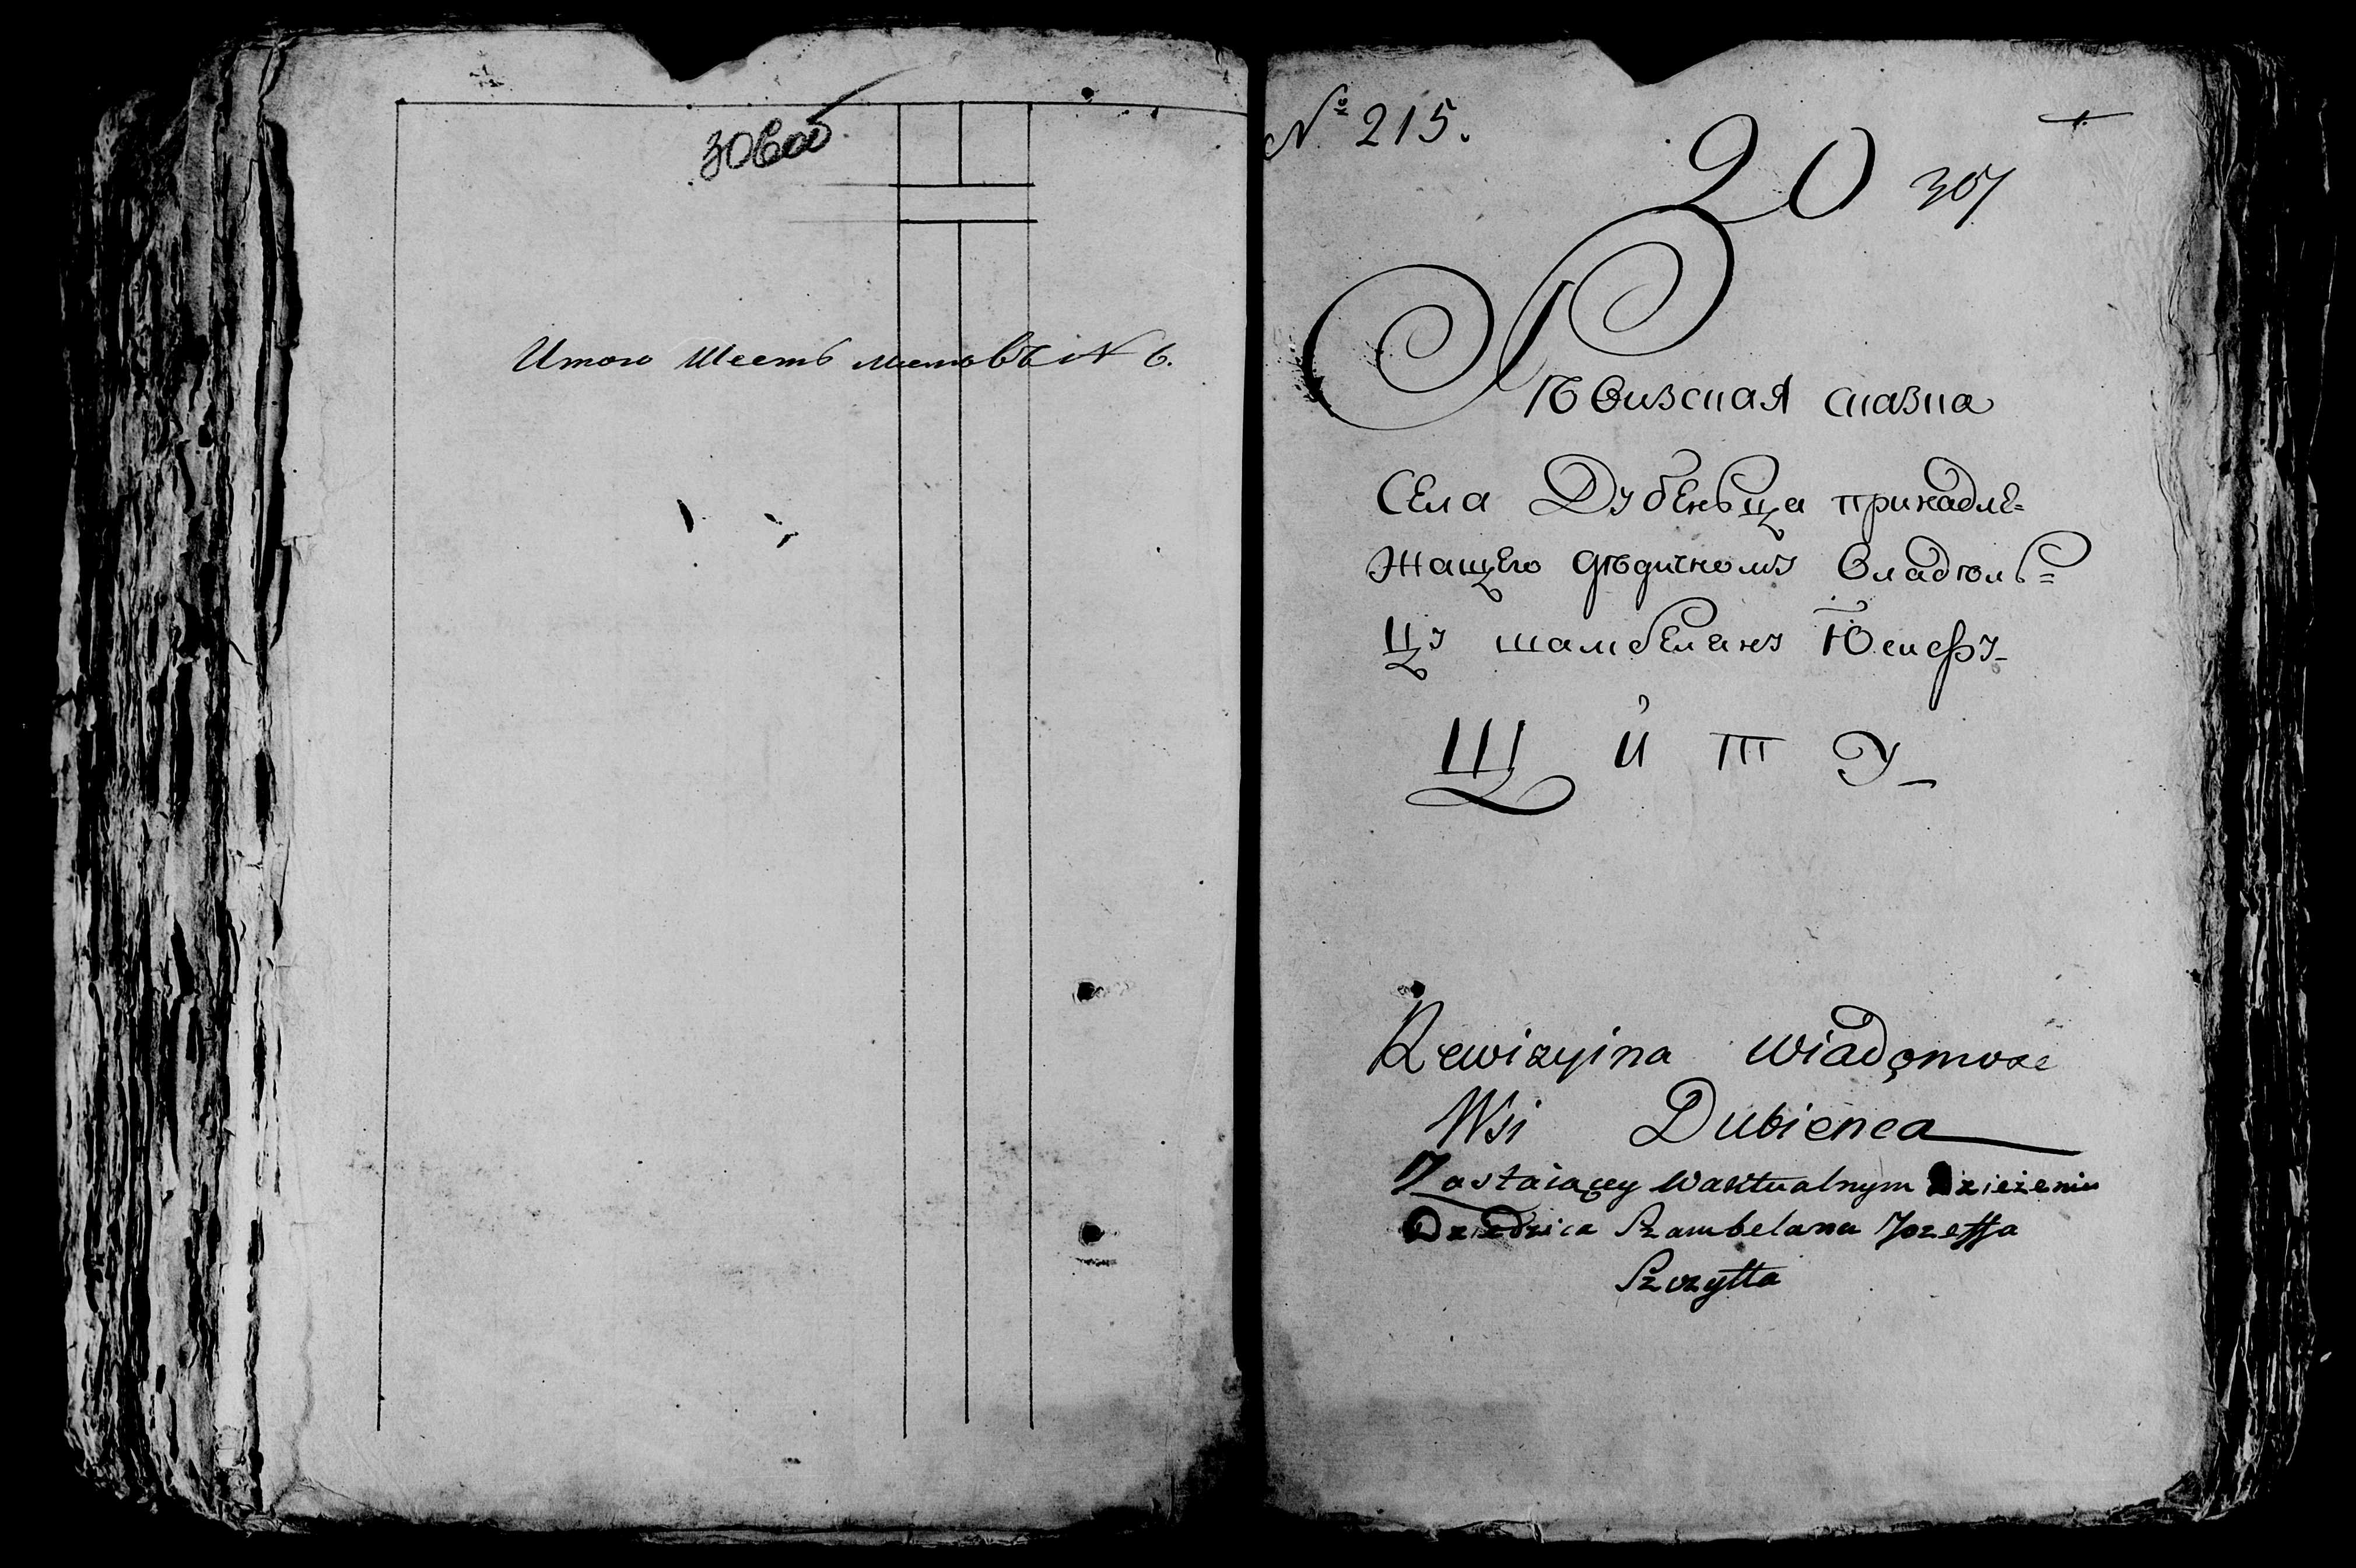 306 об
Итого Шесть листовъ № 6.
№ 215.
20 307
Рѣвизская сказка
Села Дубеньца принадле=
жащего дѣдичному владѣль=
цу шамбеляну Юсефу
Щ и т у
Rewizyina wiadomosc
Wsi Dubienca
Zostaiący w aktualnym Dzierżeniu
Dziedzica Szambelana Jozeffa
Szczytta